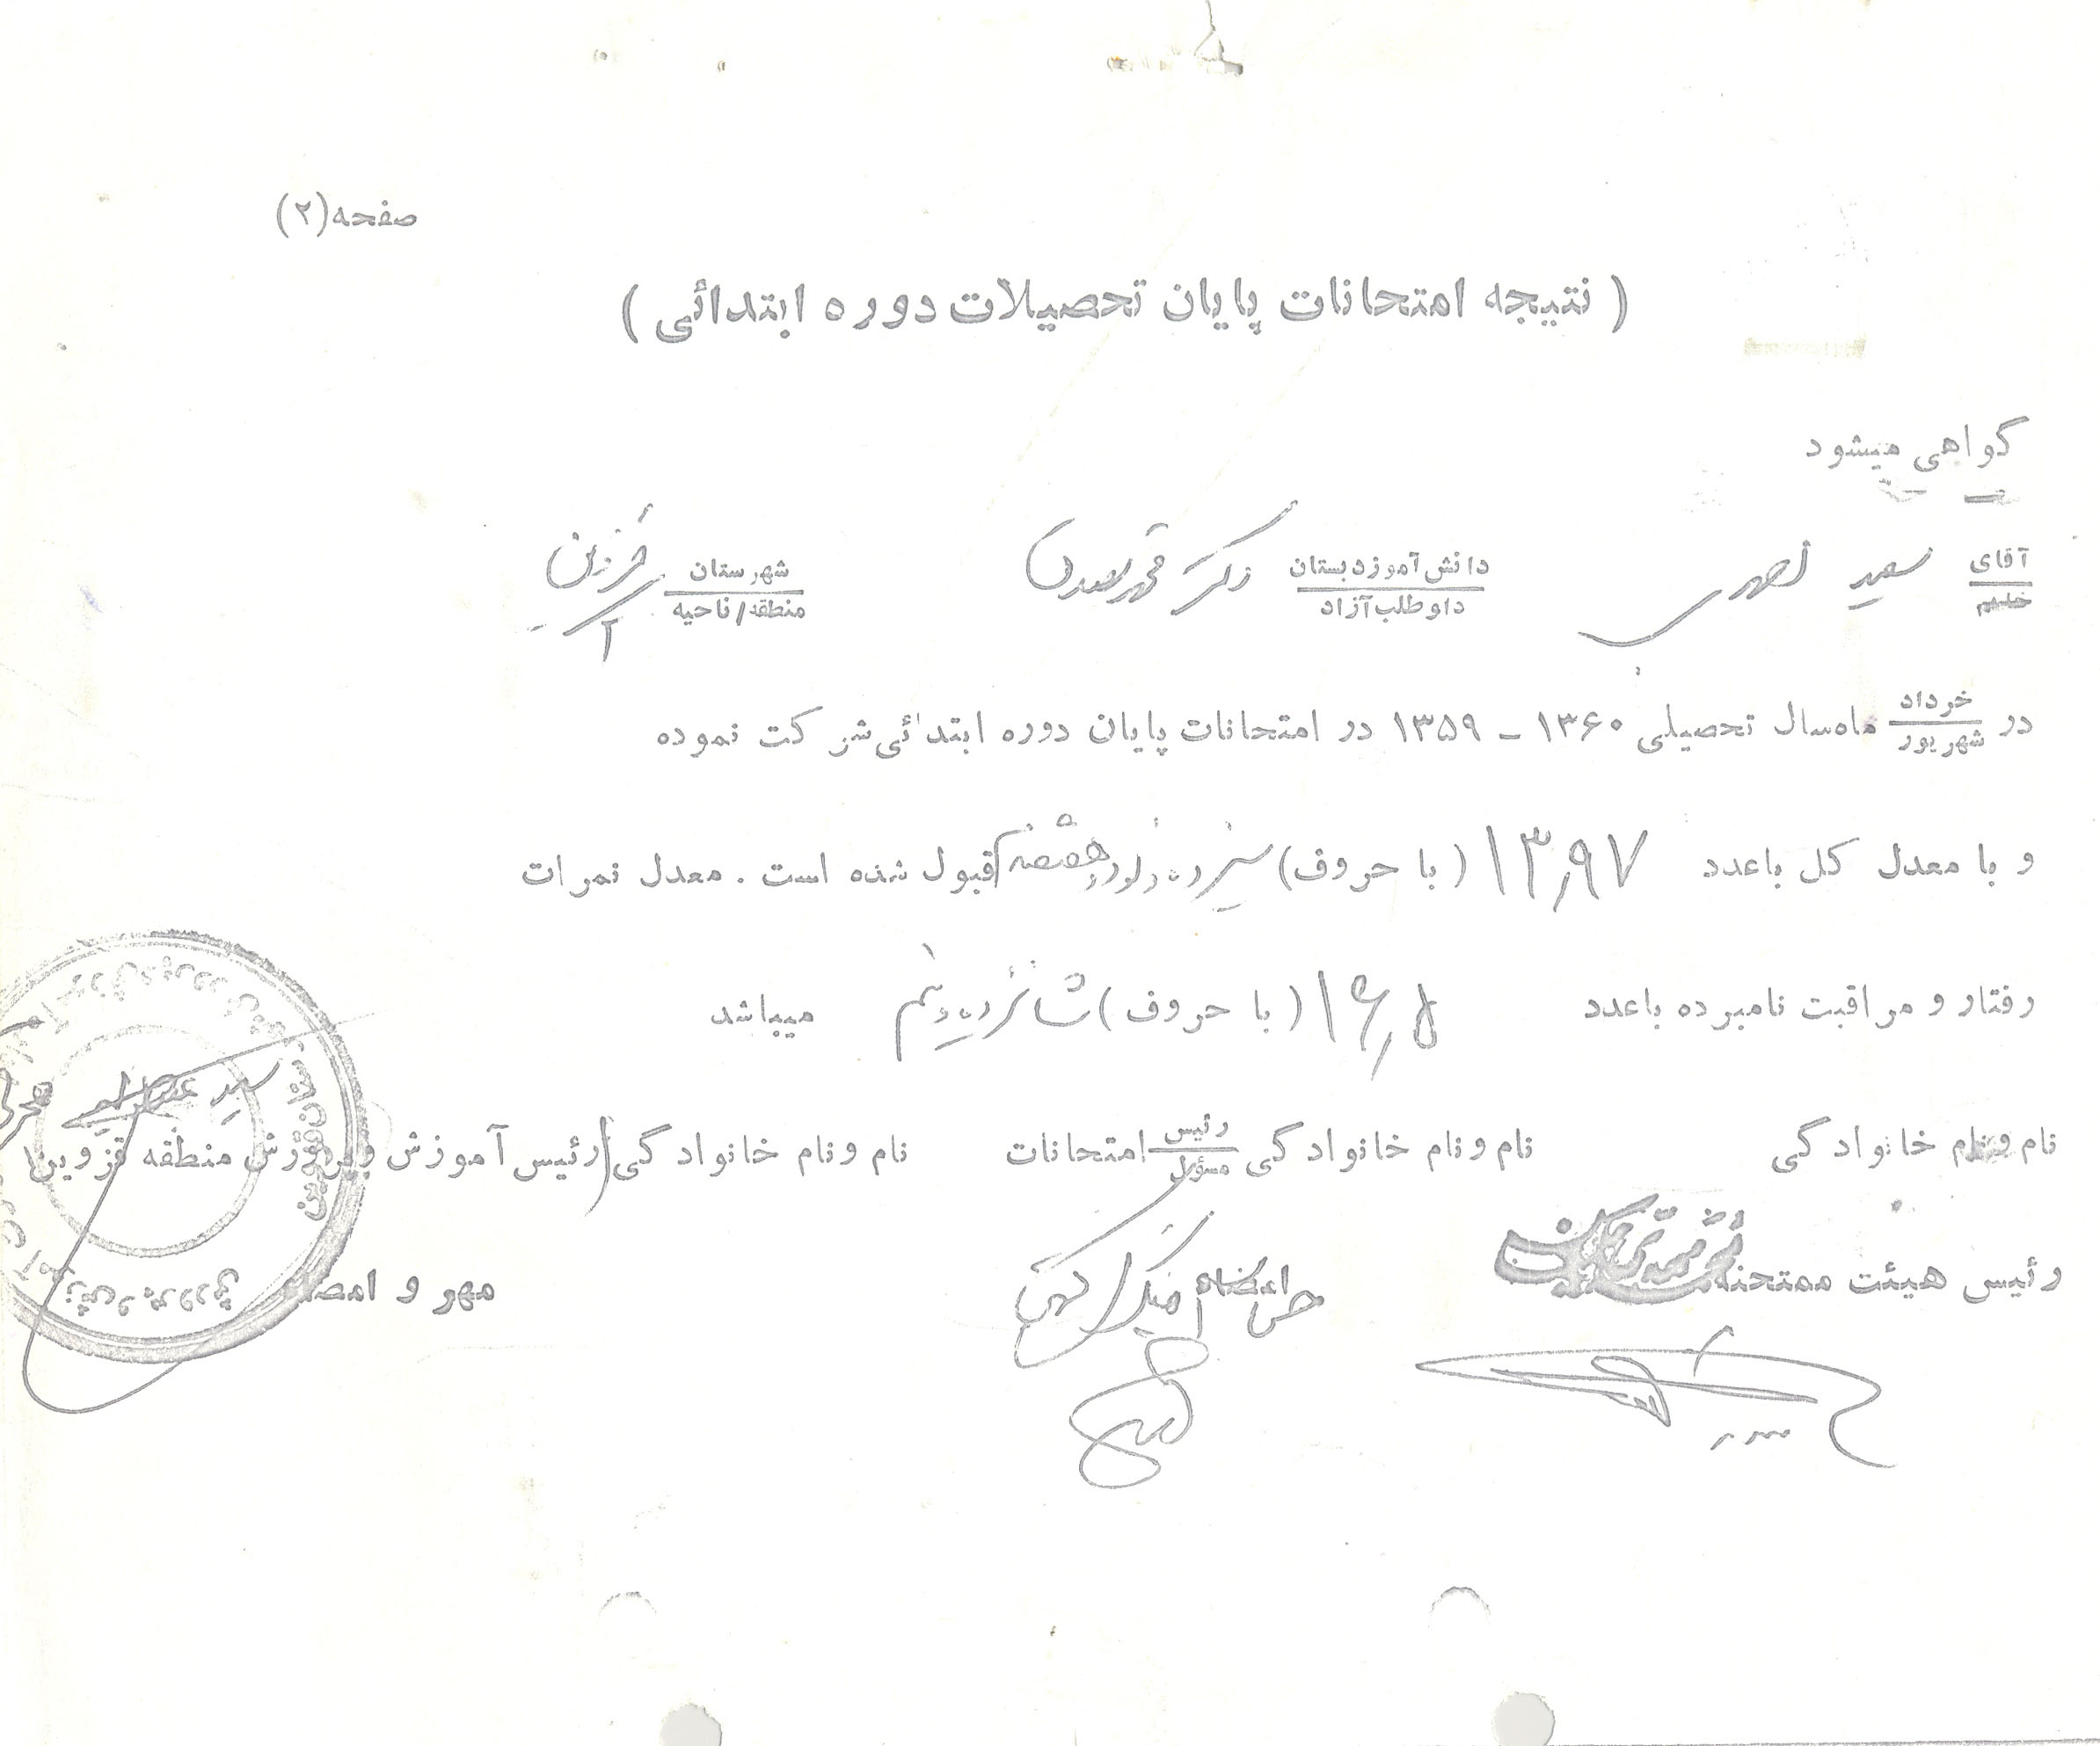 صفحه(۲)
( نتیجه امتحانات پایان تحصیلات دوره ابتدائی )
گواهی میشود
آقای
خانم
سعید
دانش‌آموز دبستان
داوطلب آزاد
شهرستان
منطقه/ناحیه
قزوین
در خرداد
شهریور
ماه سال تحصیلی ۱۳۶۰ ـ ۱۳۵۹ در امتحانات پایان دوره ابتدائی شرکت نموده
و با معدل کل باعدد ۱۳٫۹۷ (با حروف) سیزده و نود و هفت صدم قبول شده است . معدل نمرات
رفتار و مراقبت نامبرده باعدد ۱۶٫۵ (با حروف) شانزده و نیم میباشد
نام و نام خانوادگی نام و نام خانوادگی رئیس
مسئول
امتحانات نام و نام خانوادگی رئیس آموزش و پرورش منطقه قزوین
رئیس هیئت ممتحنه امضاء مهر و امضاء